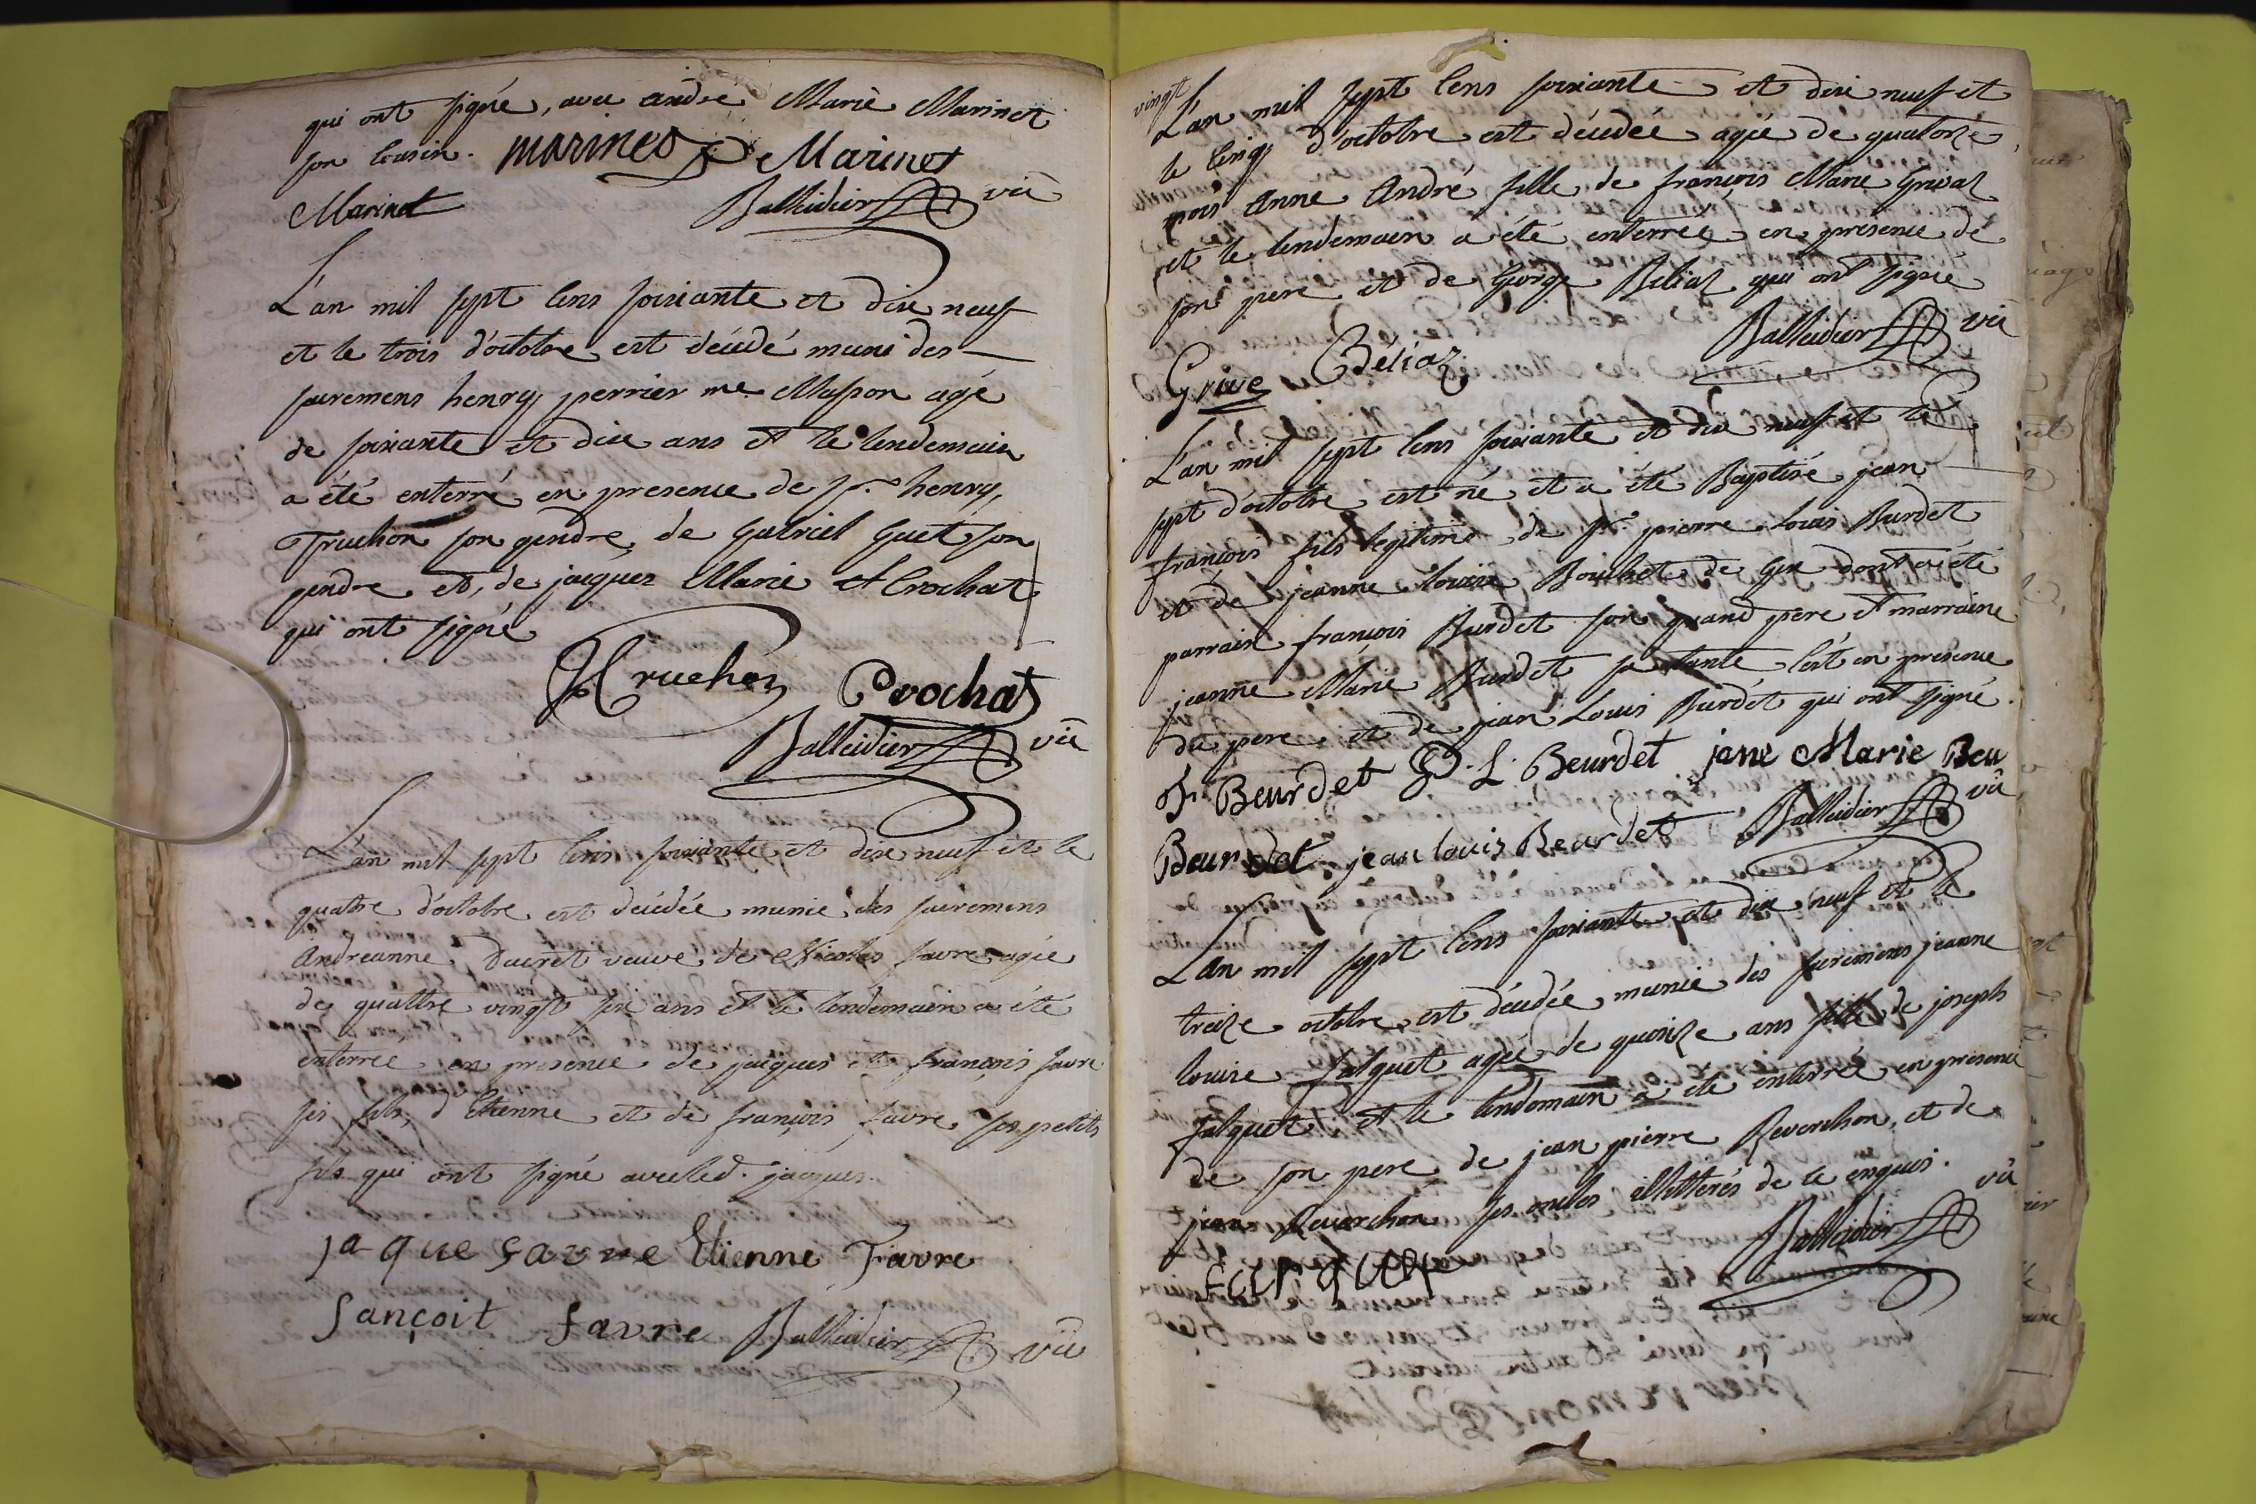 qui ont signé, avec andré Marie Marinet
son cousin. marinet Marinet
Marinet Balleidier vic
L'an mil sept cens soixante et dix neuf
et le trois d'octobre est décédé muni des
sacremens henry perrier me Masson agé
de soixante et dix ans et le lendemain
a été enterré en presence de sr. henry
Truchon son gendre, de gabriel Guet son
gendre et, de jacques Marie Crochat
qui ont signé
Truchon Crochat
Balleidier vic
L'an mil sept cens soixante et dix neuf et le
quatre d'octobre est décédée munie des sacremens
Andreanne Ducret veuve de Nicolas favre agée
de quattre vingt six ans et le lendemain a été
enterrée en presence de jacques et françois favre
ses fils, d'Etienne et de françois favre ses petits
fils qui ont signé avec led. jacques.
jaque favre Etienne Favre
fançoit favre Balleidier vic
vingt
L'an mil sept cens soixante et dix neuf et
le cinq d'octobre est décédée agée de quatorze
mois Anne André fille de françois Marie Grivaz
et le lendemain a été enterrée en présence de
son pere et de George Béliaz qui ont signé
Balleidier vic
Grive Béliaz
L'an mil sept cens soixante et dix neuf et le
sept d'octobre est né et a été Baptisé jean
françois fils legitime de sr. pierre Louis Burdet
et de jeanne Louise Bouchet de Gex dont a été
parrain françois Burdet son grand pere et marraine
jeanne Marie Burdet sa tante c'est en presence
du pere et de jean Louis Burdet qui ont signé.
F. Beurdet P. L. Beurdet jane Marie Beu
Beurdet jean louis Beurdet Balleidier vic
L'an mil sept cens soixante et dix neuf et le
treize octobre est décédée munie des sacremens jeanne
louise falquet agée de quinze ans fille de joseph
falquet et le lendemain a été enterrée en présence
de son pere de jean pierre Reverchon, et de
jean Reverchon ses oncles illettérés de ce enquis.
Balleidier vic